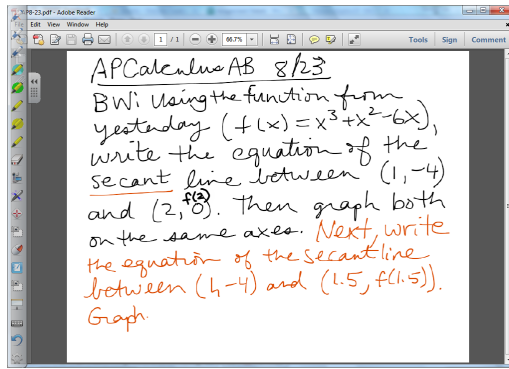 P8-23.pdf - Adobe Reader
Edit View Window Help
1 / 1 66.7% Tools Sign Comment
AP Calculus AB 8/23
BW: Using the function from
yesterday (f(x) = x³+x²-6x),
write the equation of the
secant line between (1,-4)
f(2)
and (2, 0). Then graph both
on the same axes. Next, write
the equation of the secant line
between (1,-4) and (1.5, f(1.5)).
Graph.